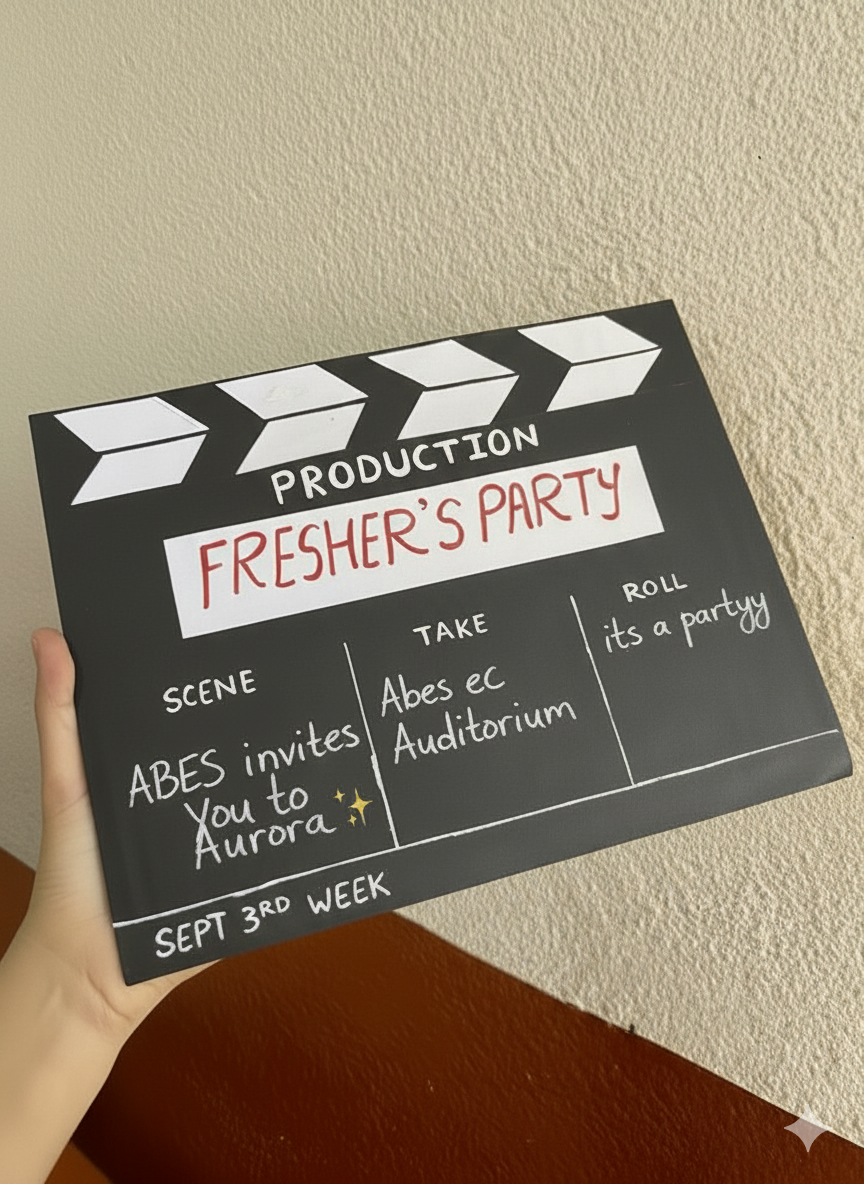 PRODUCTION
FRESHER'S PARTY
SCENE
ABES invites
You to
Aurora ✨
TAKE
Abes ec
Auditorium
ROLL
its a partyy
SEPT 3RD WEEK